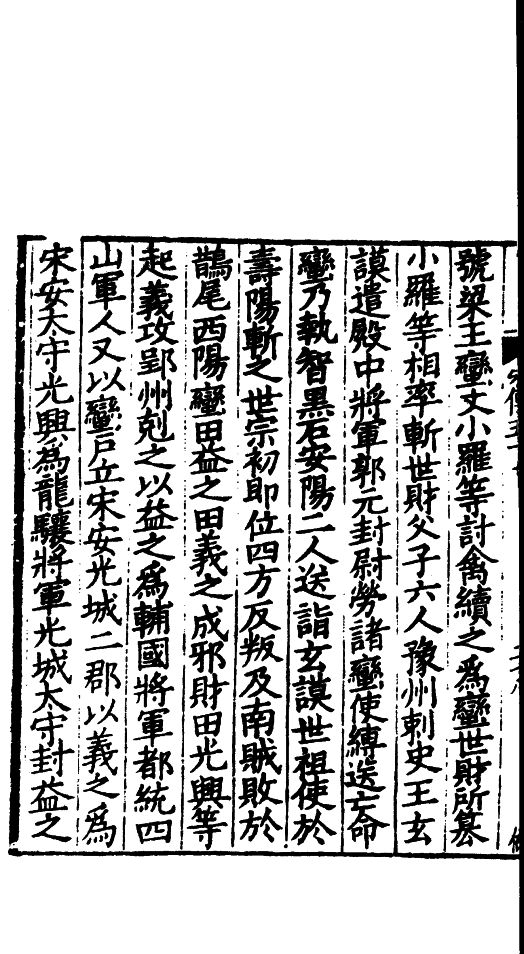 號梁王蠻文小羅等討禽續之爲蠻世財所篡
小羅等相率斬世財父子六人豫州刺史王玄
謨遣殿中將軍郭元封慰勞諸蠻使縛送亡命
蠻乃執智黑石安陽二人送詣玄謨世祖使於
壽陽斬之世宗初即位四方反叛及南賊敗於
鵲尾西陽蠻田益之田義之成邪財田光興等
起義攻郢州剋之以益之爲輔國將軍都統四
山軍人又以蠻戶立宋安光城二郡以義之爲
宋安太守光興爲龍驤將軍光城太守封益之